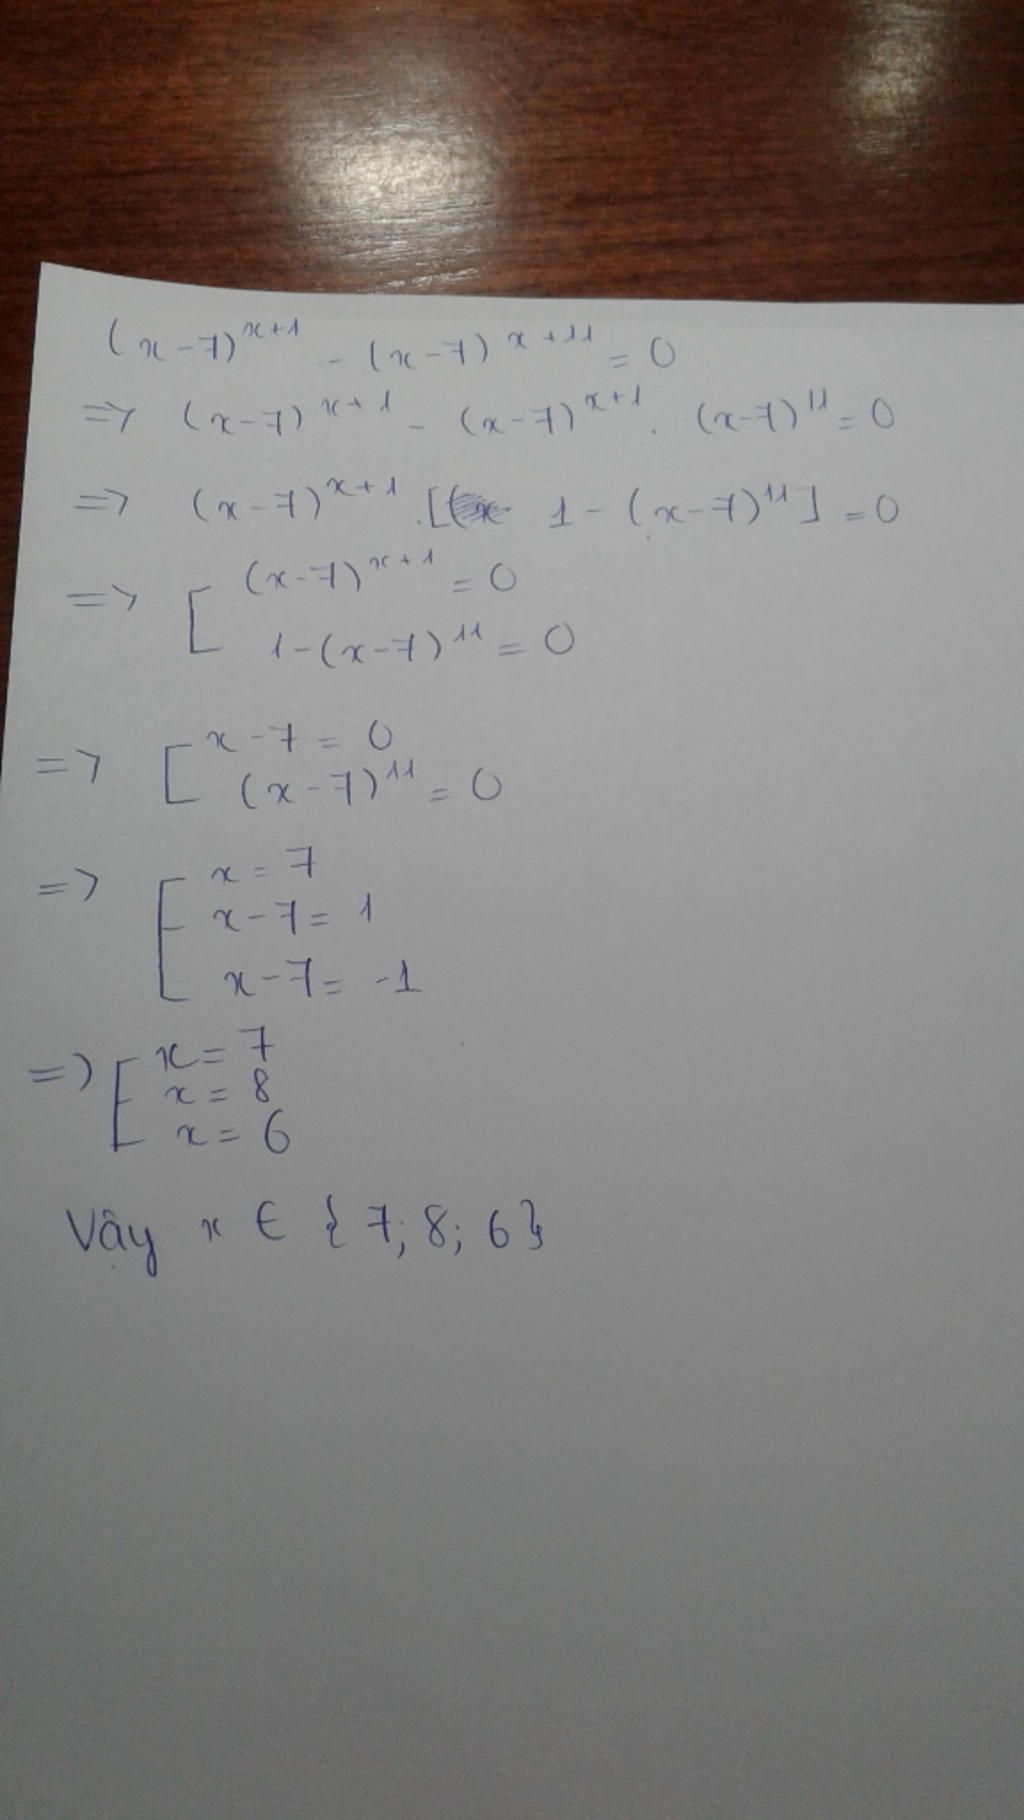 (x-7)^{x+1} - (x-7)^{x+11} = 0
=> (x-7)^{x+1} - (x-7)^{x+1} . (x-7)^{11} = 0
=> (x-7)^{x+1} . [ 1 - (x-7)^{11} ] = 0
=> [ (x-7)^{x+1} = 0
1-(x-7)^{11} = 0
=> [ x-7 = 0
(x-7)^{11} = 0
=> [ x = 7
x-7 = 1
x-7 = -1
=> [ x = 7
x = 8
x = 6
Vây x ∈ {7; 8; 6}